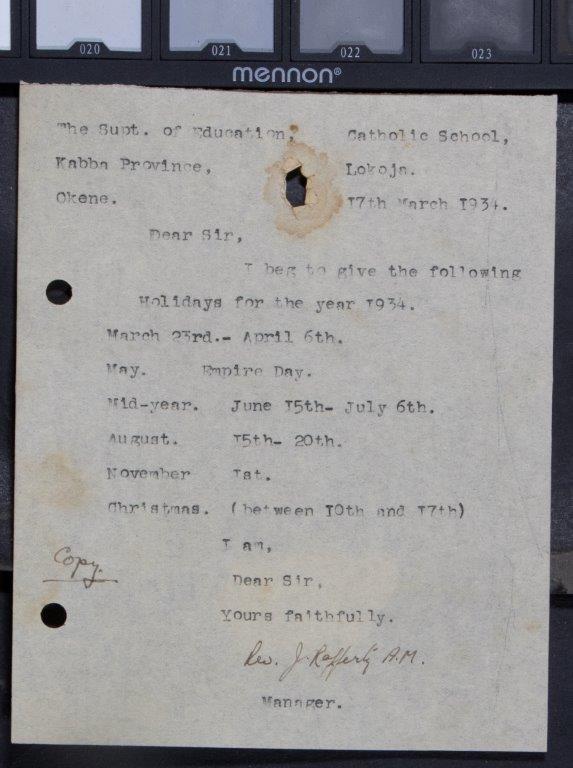 020 021 022 023
mennon®
The Supt. of Education, Catholic School,
Kabba Province, Lokoja.
Okene. I7th March I934.
Dear Sir,
I beg to give the following
Holidays for the year I934.
March 23rd.- April 6th.
May. Empire Day.
Mid-year. June I5th- July 6th.
August. I5th- 20th.
November Ist.
Christmas. (between I0th and I7th)
I am,
Copy.
Dear Sir,
Yours faithfully.
Rev. J. Rafferty A.M.
Manager.